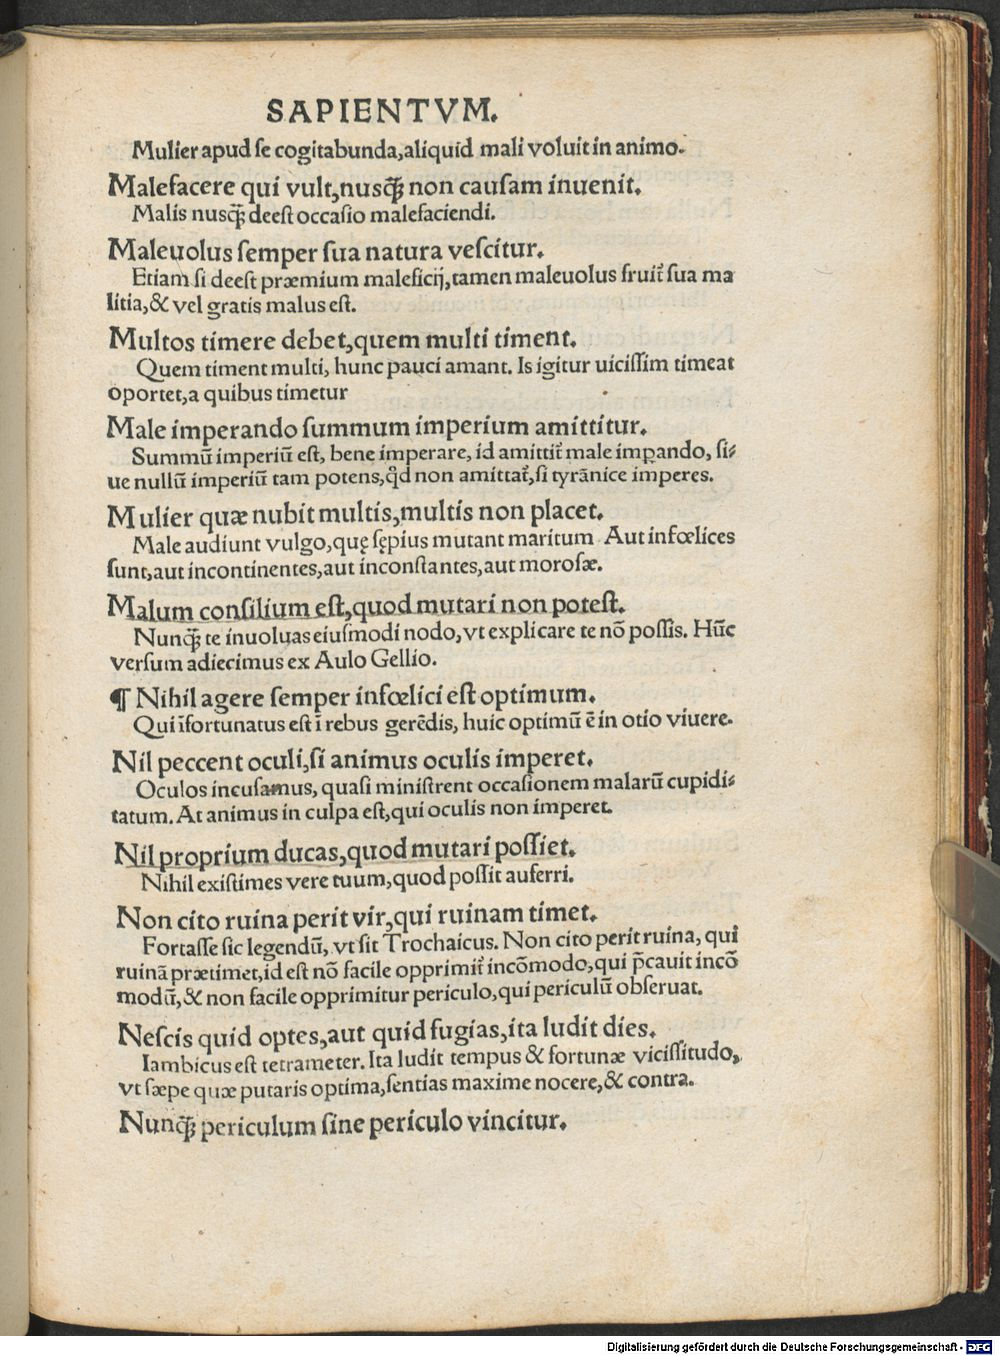 SAPIENTVM.
Mulier apud se cogitabunda, aliquid mali voluit in animo.
Malefacere qui vult, nusꝗ̃ non causam inuenit.
Malis nusꝗ̃ deest occasio malefaciendi.
Maleuolus semper sua natura vescitur.
Etiam si deest præmium maleficij, tamen maleuolus fruit᷑ sua ma
litia, & vel gratis malus est.
Multos timere debet, quem multi timent.
Quem timent multi, hunc pauci amant. Is igitur uicissim timeat
oportet, a quibus timetur
Male imperando summum imperium amittitur.
Summū imperiū est, bene imperare, id amittit᷑ male imꝑando, si-
ue nullū imperiū tam potens, qd̛ non amittat᷑, si tyrānice imperes.
Mulier quæ nubit multis, multis non placet.
Male audiunt vulgo, quę sępius mutant maritum Aut infœlices
sunt, aut incontinentes, aut inconstantes, aut morosæ.
Malum consilium est, quod mutari non potest.
Nunꝗ̃ te inuoluas eiusmodi nodo, vt explicare te nō possis. Hūc
versum adiecimus ex Aulo Gellio.
¶ Nihil agere semper infœlici est optimum.
Qui īfortunatus est ī rebus gerēdis, huic optimū ē in otio viuere.
Nil peccent oculi, si animus oculis imperet.
Oculos incusamus, quasi ministrent occasionem malarū cupidi-
tatum. At animus in culpa est, qui oculis non imperet.
Nil proprium ducas, quod mutari possiet.
Nihil existimes vere tuum, quod possit auferri.
Non cito ruina perit vir, qui ruinam timet.
Fortasse sic legendū, vt sit Trochaicus. Non cito perit ruina, qui
ruinā prætimet, id est nō facile opprimit᷑ incōmodo, qui p̄cauit incō
modū, & non facile opprimitur periculo, qui periculū obseruat.
Nescis quid optes, aut quid fugias, ita ludit dies.
Iambicus est tetrameter. Ita ludit tempus & fortunæ vicissitudo,
vt sæpe quæ putaris optima, sentias maxime nocere, & contra.
Nunꝗ̃ periculum sine periculo vincitur.
Digitalisierung gefördert durch die Deutsche Forschungsgemeinschaft - DFG